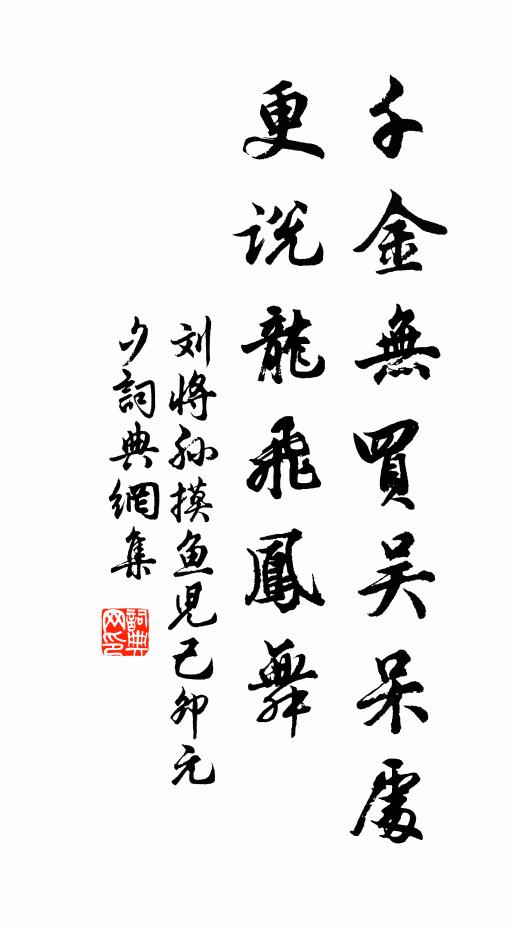 千金無買吴呆處
更说龍飛鳳舞
刘将孙摸鱼児己卯元
夕詞典網集
詞典